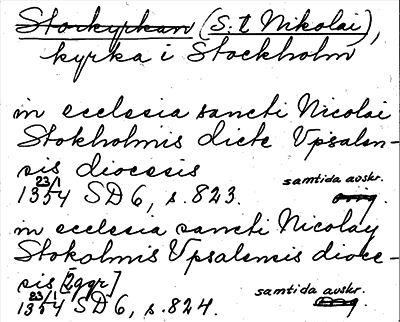 Storkyrkan (S:t Nikolai),
kyrka i Stockholm
in ecclesia sancti Nicolai
Stokholmis dicte Upsalen-
sis diocesis
23/1 1354 SD 6, s. 823. samtida avskr.
orig.
in ecclesia sancti Nicolay
Stokolmis Upsalensis dioce-
sis [2ggr]
23/1 1354 SD 6, s. 824. samtida avskr.
orig.